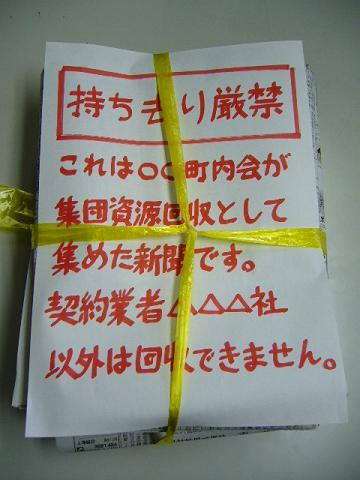 持ち去り厳禁
これは○○町内会が
集団資源回収として
集めた新聞です。
契約業者△△△社
以外は回収できません。